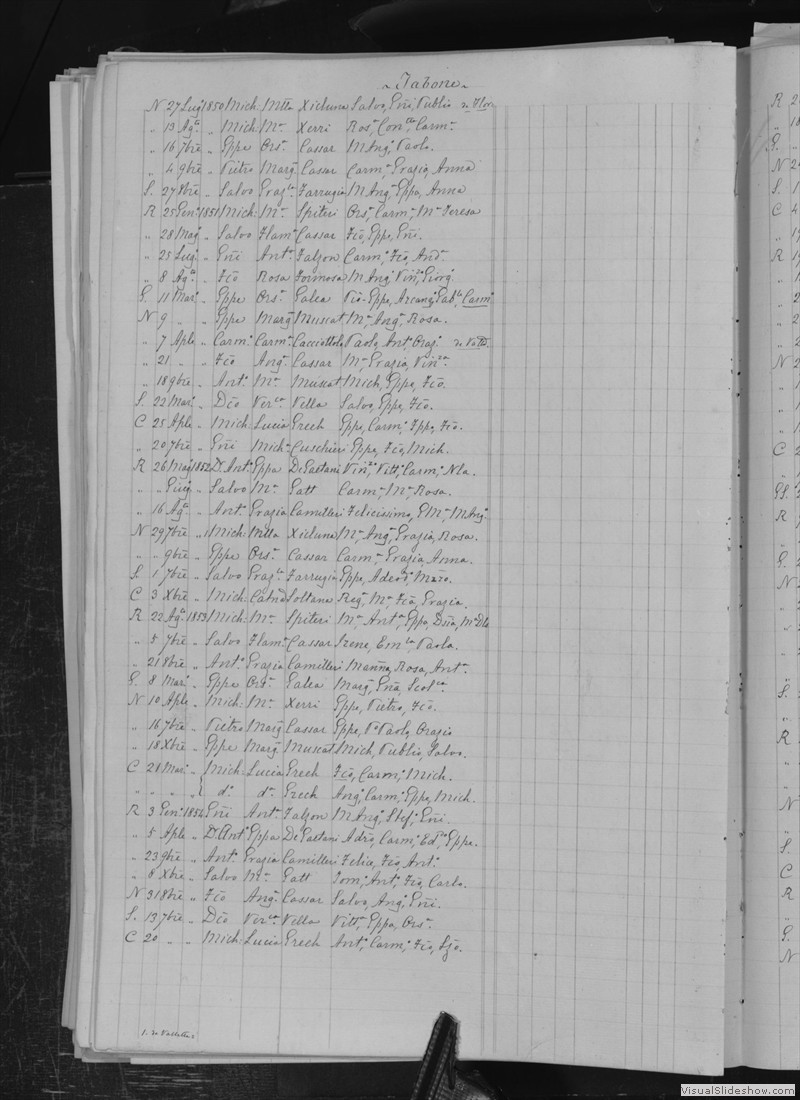 Tabone
N 27 Lug. 1850 Mich: Mtta Xicluna Salvo, Eñi, Publio de Flor
" 13 Agº " Mich: Mª Xerri Rosª, Conᵗᵃ, Carmª
" 16 7bre " Gppe Orsª Cassar M Angª, Paola.
" 4 9bre " Pietro Margª Cassar Carmª, Grazia, Anna
S. 27 8bre " Salvo Grazª Farrugia M Angª, Gppa, Anna
R 25 Genº 1851 Mich: Mª Spiteri Orsª, Carmª, Mª Teresa
" 28 Magº " Salvo Flamª Cassar Fcõ, Gppe, Eñi.
" 25 Lug. " Eñi Antª Falzon Carmº, Fcõ, Andª
" 8 Agº " Fcõ Rosa Formosa M Angº, Vinᶻᵒ, Giorgº
G. 11 Marº " Gppe Orsª Galea Vio-Gppe, Arcangº, Gabˡᵉ, Carmº
N 9 " " Gppe Margª Muscat Mª, Angª, Rosa.
" 7 Aple " Carmº Carmª Cacciottolo Paolo, Antº, Orazº de Vallª
" 21 " " Fcõ Angª Cassar Mª, Grazia, Vinᶻᵃ.
" 18 9bre " Antº Mª Muscat Mich, Gppe, Fcõ.
S. 22 Marº " Dcõ Verᶜᵃ Vella Salvo, Gppe, Fcõ.
C 25 Aple " Mich: Lucia Grech Gppe, Carmº, Fppo, Fcõ.
" 20 7bre " Eñi Michª Cuschieri Gppe, Fcõ, Mich.
R 26 Magº 1852 Dr. Antº Gppa De Gaetani Vinᶻᵒ, Vittº, Carmº, Nla.
" " Giugº " Salvo Mª Gatt Carmª, Mª, Rosa.
" 16 Agº " Antº Grazia Camilleri Felicissima, G Mª, M Angª
N 29 7bre " Mich: Mtta Xicluna Mª, Angª, Grazia, Rosa.
" " 9bre " Gppe Orsª Cassar Carmª, Grazia, Anna.
S. 1 7bre " Salvo Grazª Farrugia Gppa, Adeodª,
C 3 Xbre " Mich: Catña Soltana Regª, Mª, Fcã, Grazia.
R 22 Agº 1853 Mich: Mª Spiteri Mª, Antª, Gppa,
" 5 7bre " Salvo Flamª Cassar Irene, Emˡᵃ, Paola.
" 21 8bre " Antº Grazia Camilleri Manña, Rosa, Antª
G. 8 Marº " Gppe Orsª Galea Margª, Eñã, Scolᶜᵃ
N 10 Aple " Mich: Mª Xerri Gppe, Pietro, Fcõ.
" 16 7bre " Pietro Margª Cassar Gppe, Paolo, Orazio
" 18 Xbre " Gppe Margª Muscat Mich, Publio, Salvo.
C 21 Marº " Mich: Lucia Grech Fcõ, Carmº, Mich.
" " " " dº dº Grech Angº, Carmº, Gppe, Mich.
R 3 Genº 1854 Eñi Antª Falzon M Angº, Stefº, Eñi.
" 5 Aple " Dr. Antº Gppa De Gaetani Adrõ, Carmº, Edᵈᵒ, Gppe.
" 23 9bre " Antº Grazia Camilleri Felice, Fcõ, Antº
" 6 Xbre " Salvo Mª Gatt Tomº, Antº, Fcõ, Carlo.
N 31 8bre " Fcõ Angª Cassar Salvo, Angº, Eñi.
S. 13 7bre " Dcõ Verᶜᵃ Vella Vittª, Gppa, Orsª
C 20 " " Mich: Lucia Grech Antº, Carmº, Fcõ,
1. de Valletta
VisualSlideshow.com